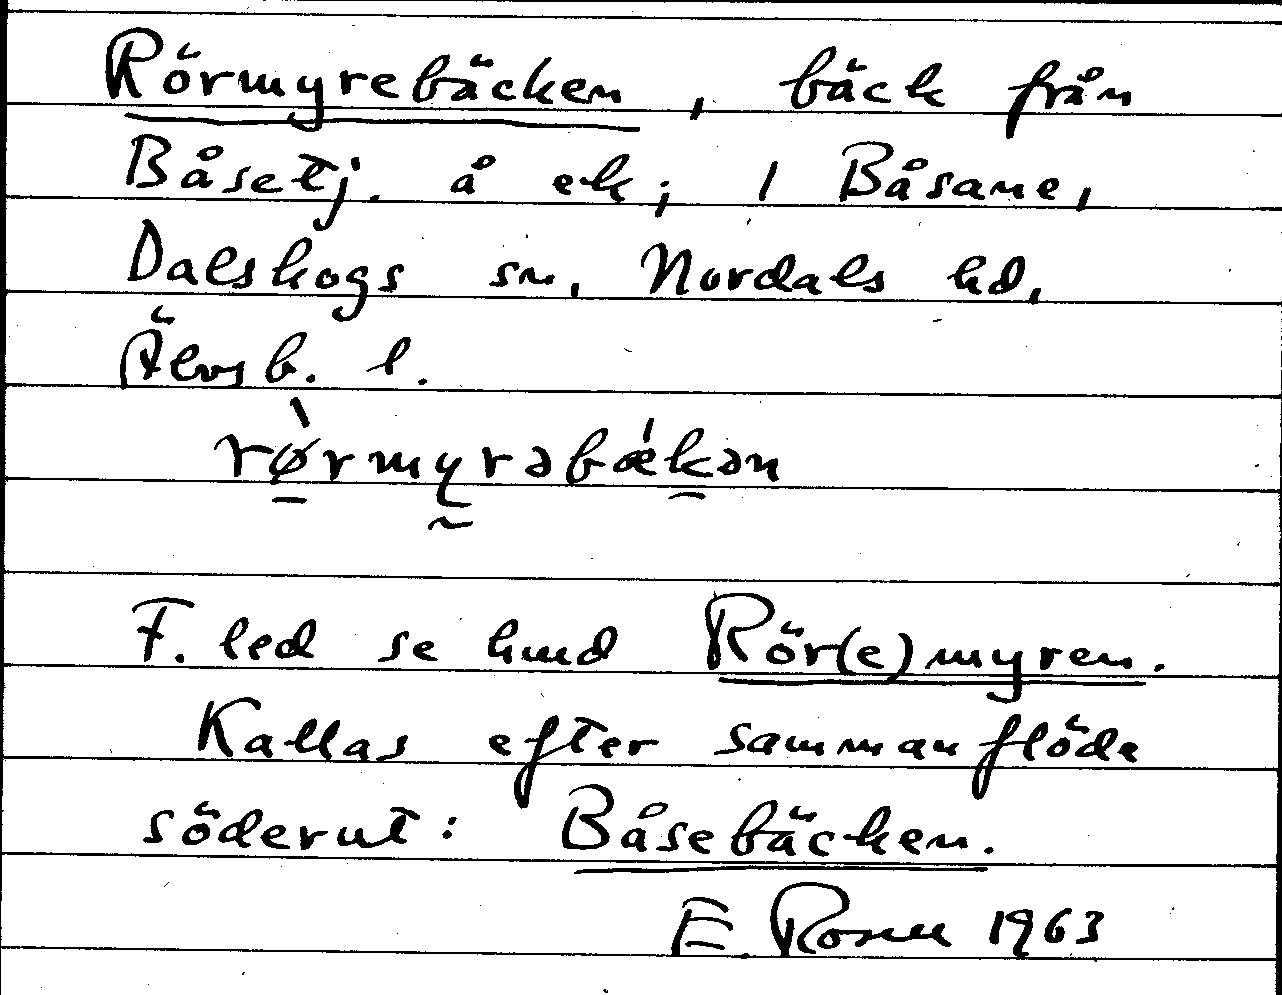 Rörmyrebäcken, bäck från
Båsetj. å ek; i Båsane,
Dalskogs sn, Nordals hd,
Älvsb. l.
rø̀rmyrəbǽkən
F. led se himd Rör(e)myren.
Kallas efter sammanflöde
söderut: Båsebäcken.
E. Rosell 1963